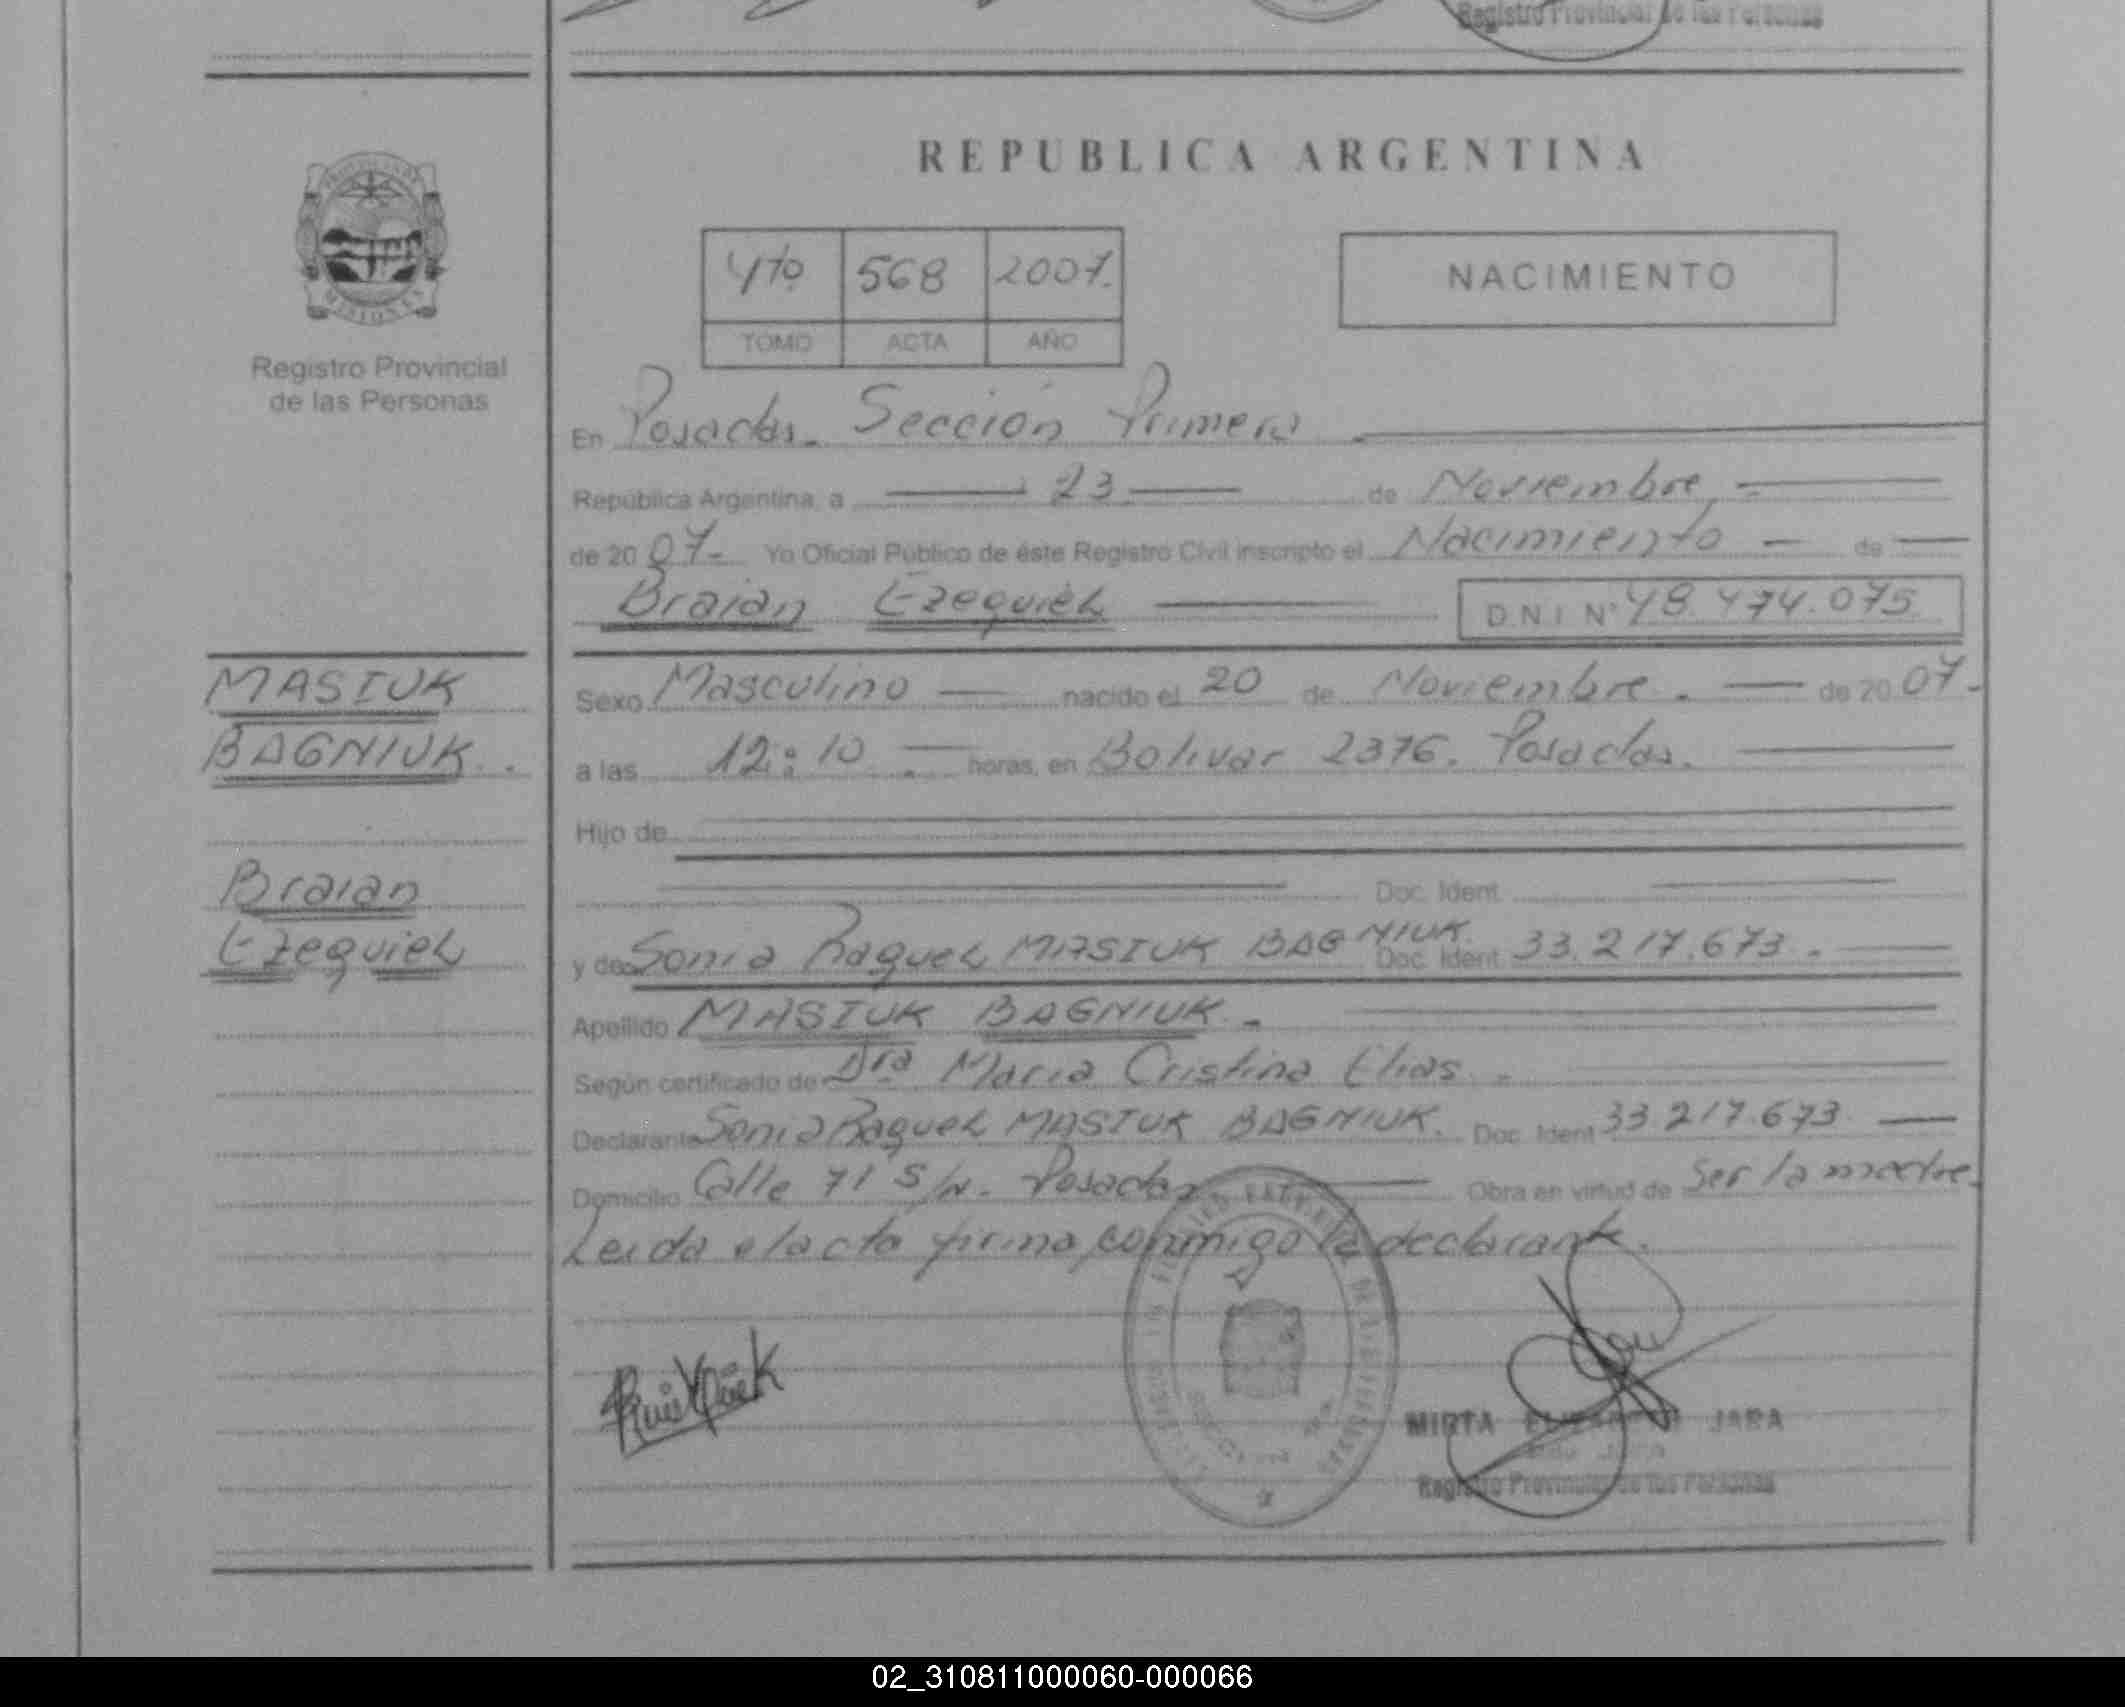 Registro Provincial de las Personas
REPUBLICA ARGENTINA
4to 568 2007.
TOMO ACTA AÑO
NACIMIENTO
MISIONES
Registro Provincial
de las Personas
En Posadas. Sección Primera
República Argentina, a 23 de Noviembre
de 20 07- Yo Oficial Público de éste Registro Civil inscripto el Nacimiento de
Braian Ezequiel D.N.I. N° 48.474.075
MASIUK
BAGNIUK.
Braian
Ezequiel
Sexo Masculino nacido el 20 de Noviembre. de 20 07-
a las 12:10 horas, en Bolivar 2376. Posadas.
Hijo de
Doc. Ident.
y de Sonia Raquel MASIUK BAGNIUK Doc. Ident. 33.217.673.
Apellido MASIUK BAGNIUK.
Según certificado de Dra Maria Cristina Elias
Declarante Sonia Raquel MASIUK BAGNIUK. Doc. Ident 33.217.673
Domicilio Calle 71 S/N. Posadas Obra en virtud de Ser la madre.
Leida el acta firma conmigo la declarante.
MIRTA JARA
Registro Provincial de las Personas
02_310811000060-000066